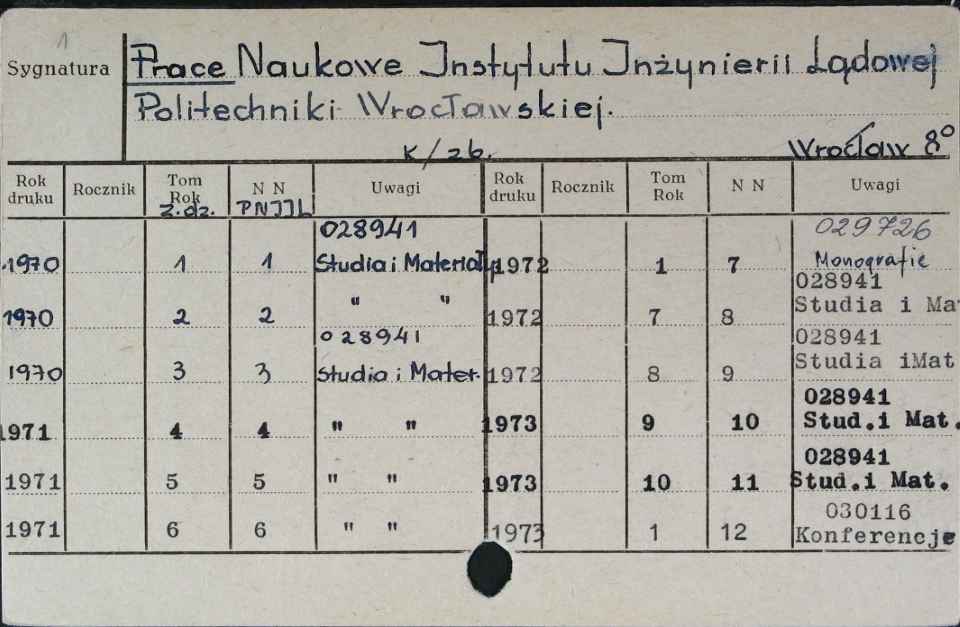 1
Sygnatura
Prace Naukowe Instytutu Inżynierii Lądowej
Politechniki Wrocławskiej.
K/26. Wrocław 8°
Rok druku Rocznik Tom Rok z.dz. N N PNIIL Uwagi Rok druku Rocznik Tom Rok N N Uwagi
028941 029726
1970 1 1 Studia i Materiały 1972 1 7 Monografie
028941
1970 2 2 " " 1972 7 8 Studia i Mat
028941 028941
1970 3 3 Studia i Mater. 1972 8 9 Studia iMat
028941
1971 4 4 " " 1973 9 10 Stud.i Mat.
028941
1971 5 5 " " 1973 10 11 Stud.i Mat.
030116
1971 6 6 " " 1973 1 12 Konferencje